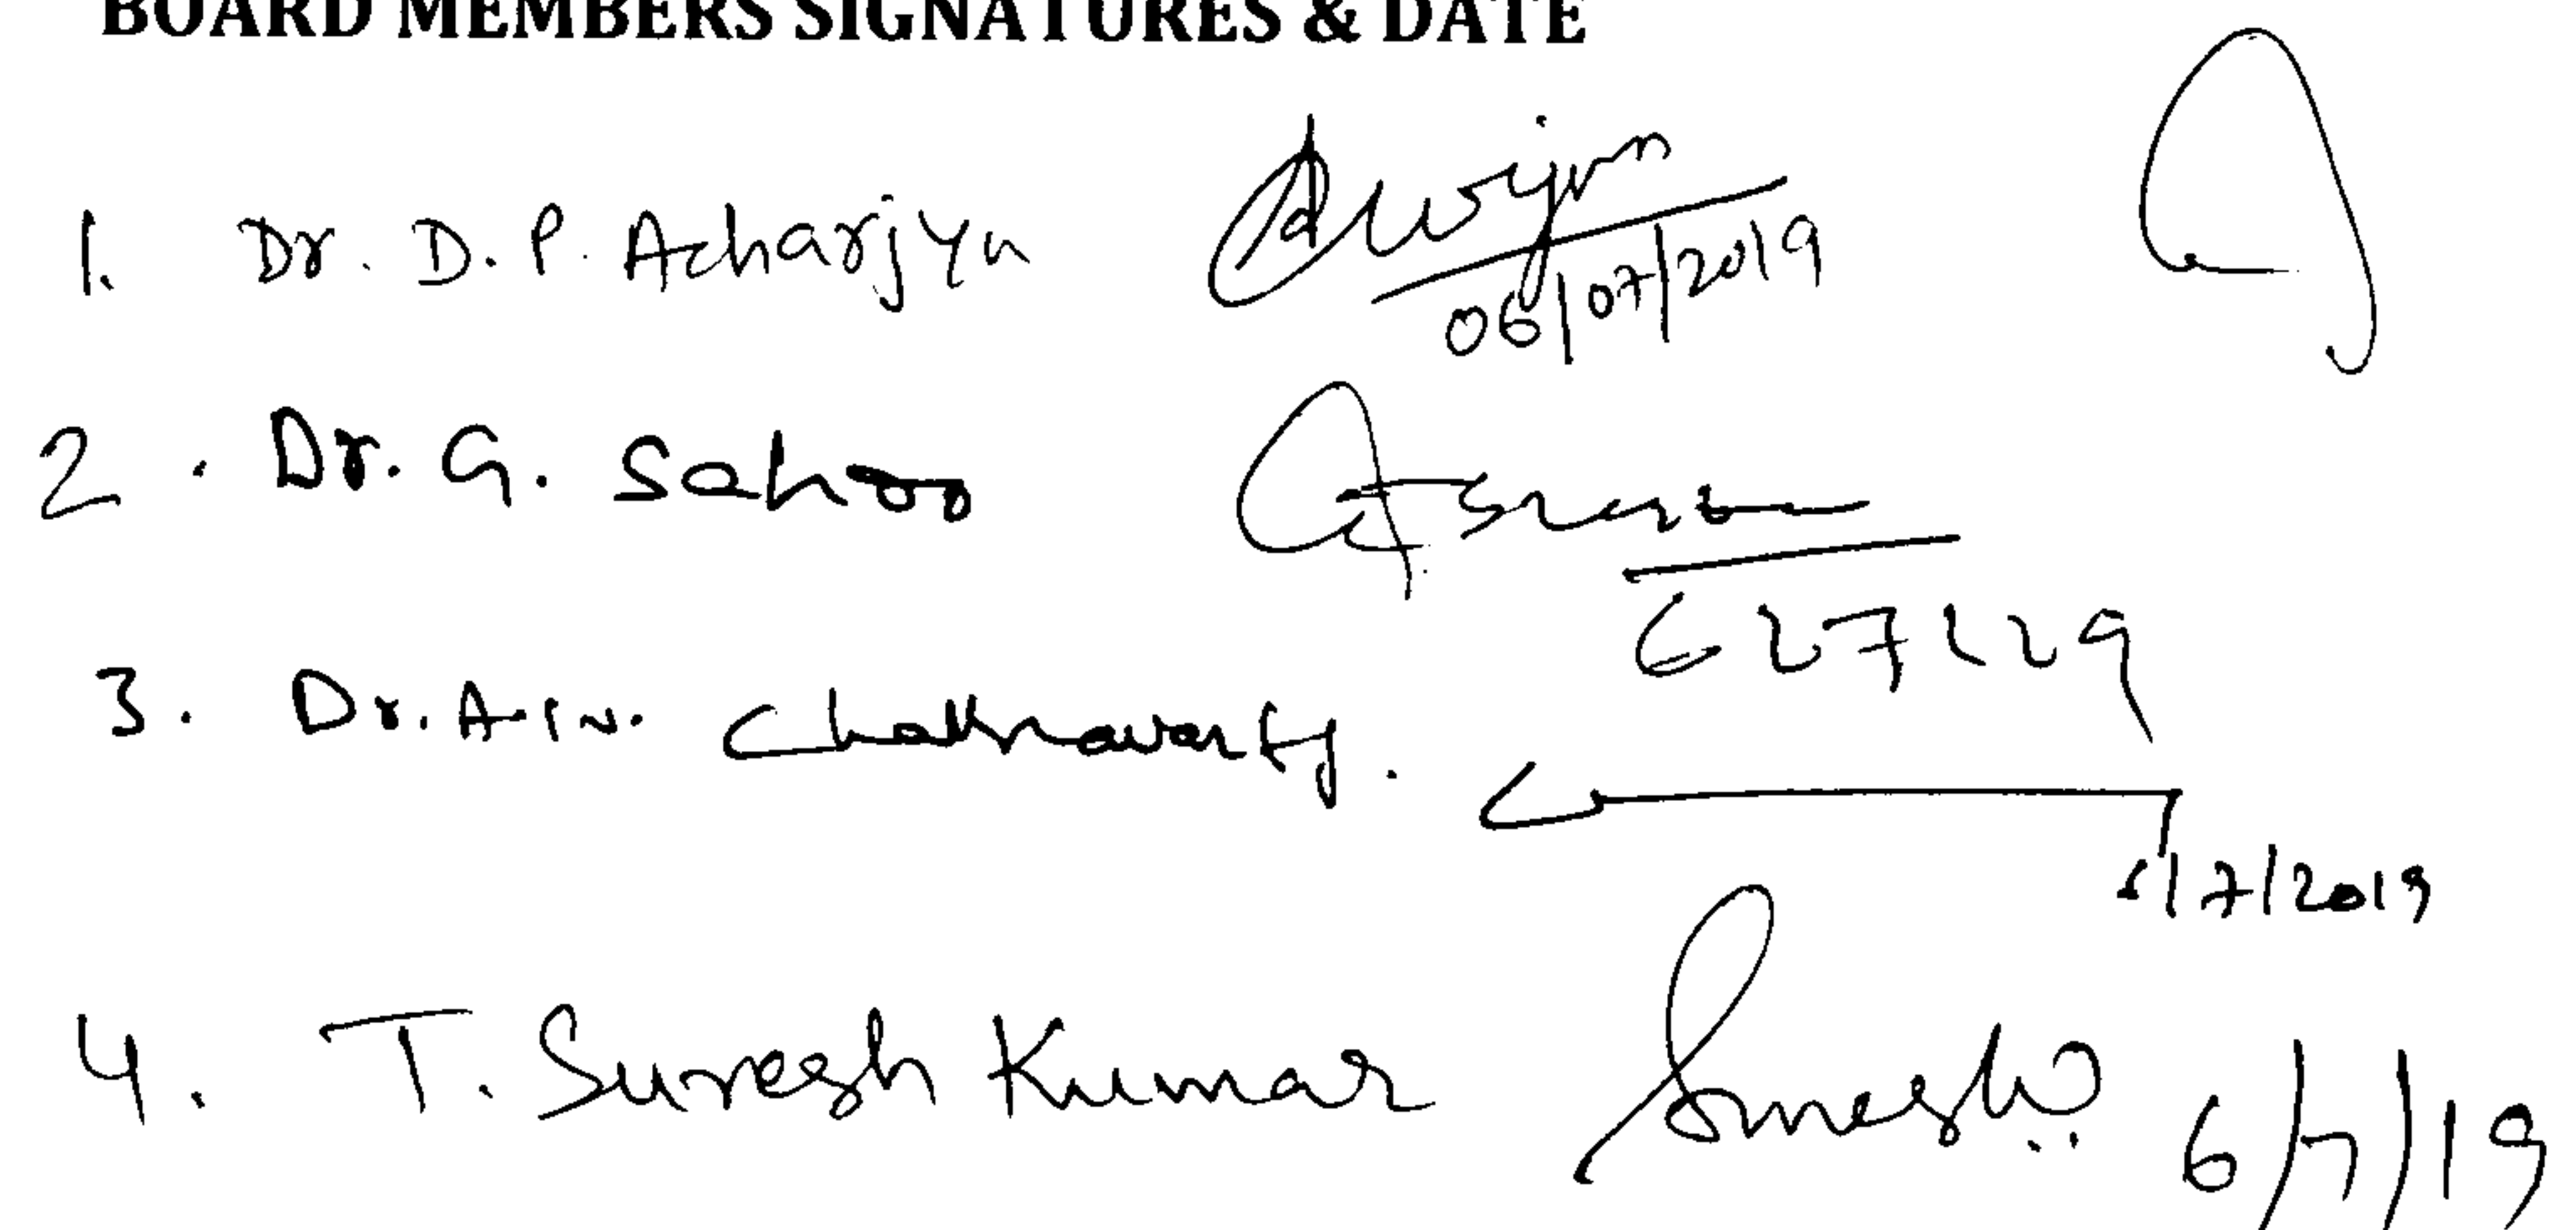 BOARD MEMBERS SIGNATURES & DATE
1. Dr. D. P. Acharjya
06/07/2019
2. Dr. G. Sahoo
3. Dr. A. N. Chakravarty.
/7/2019
4. T. Suresh Kumar Suresh 6/7/19